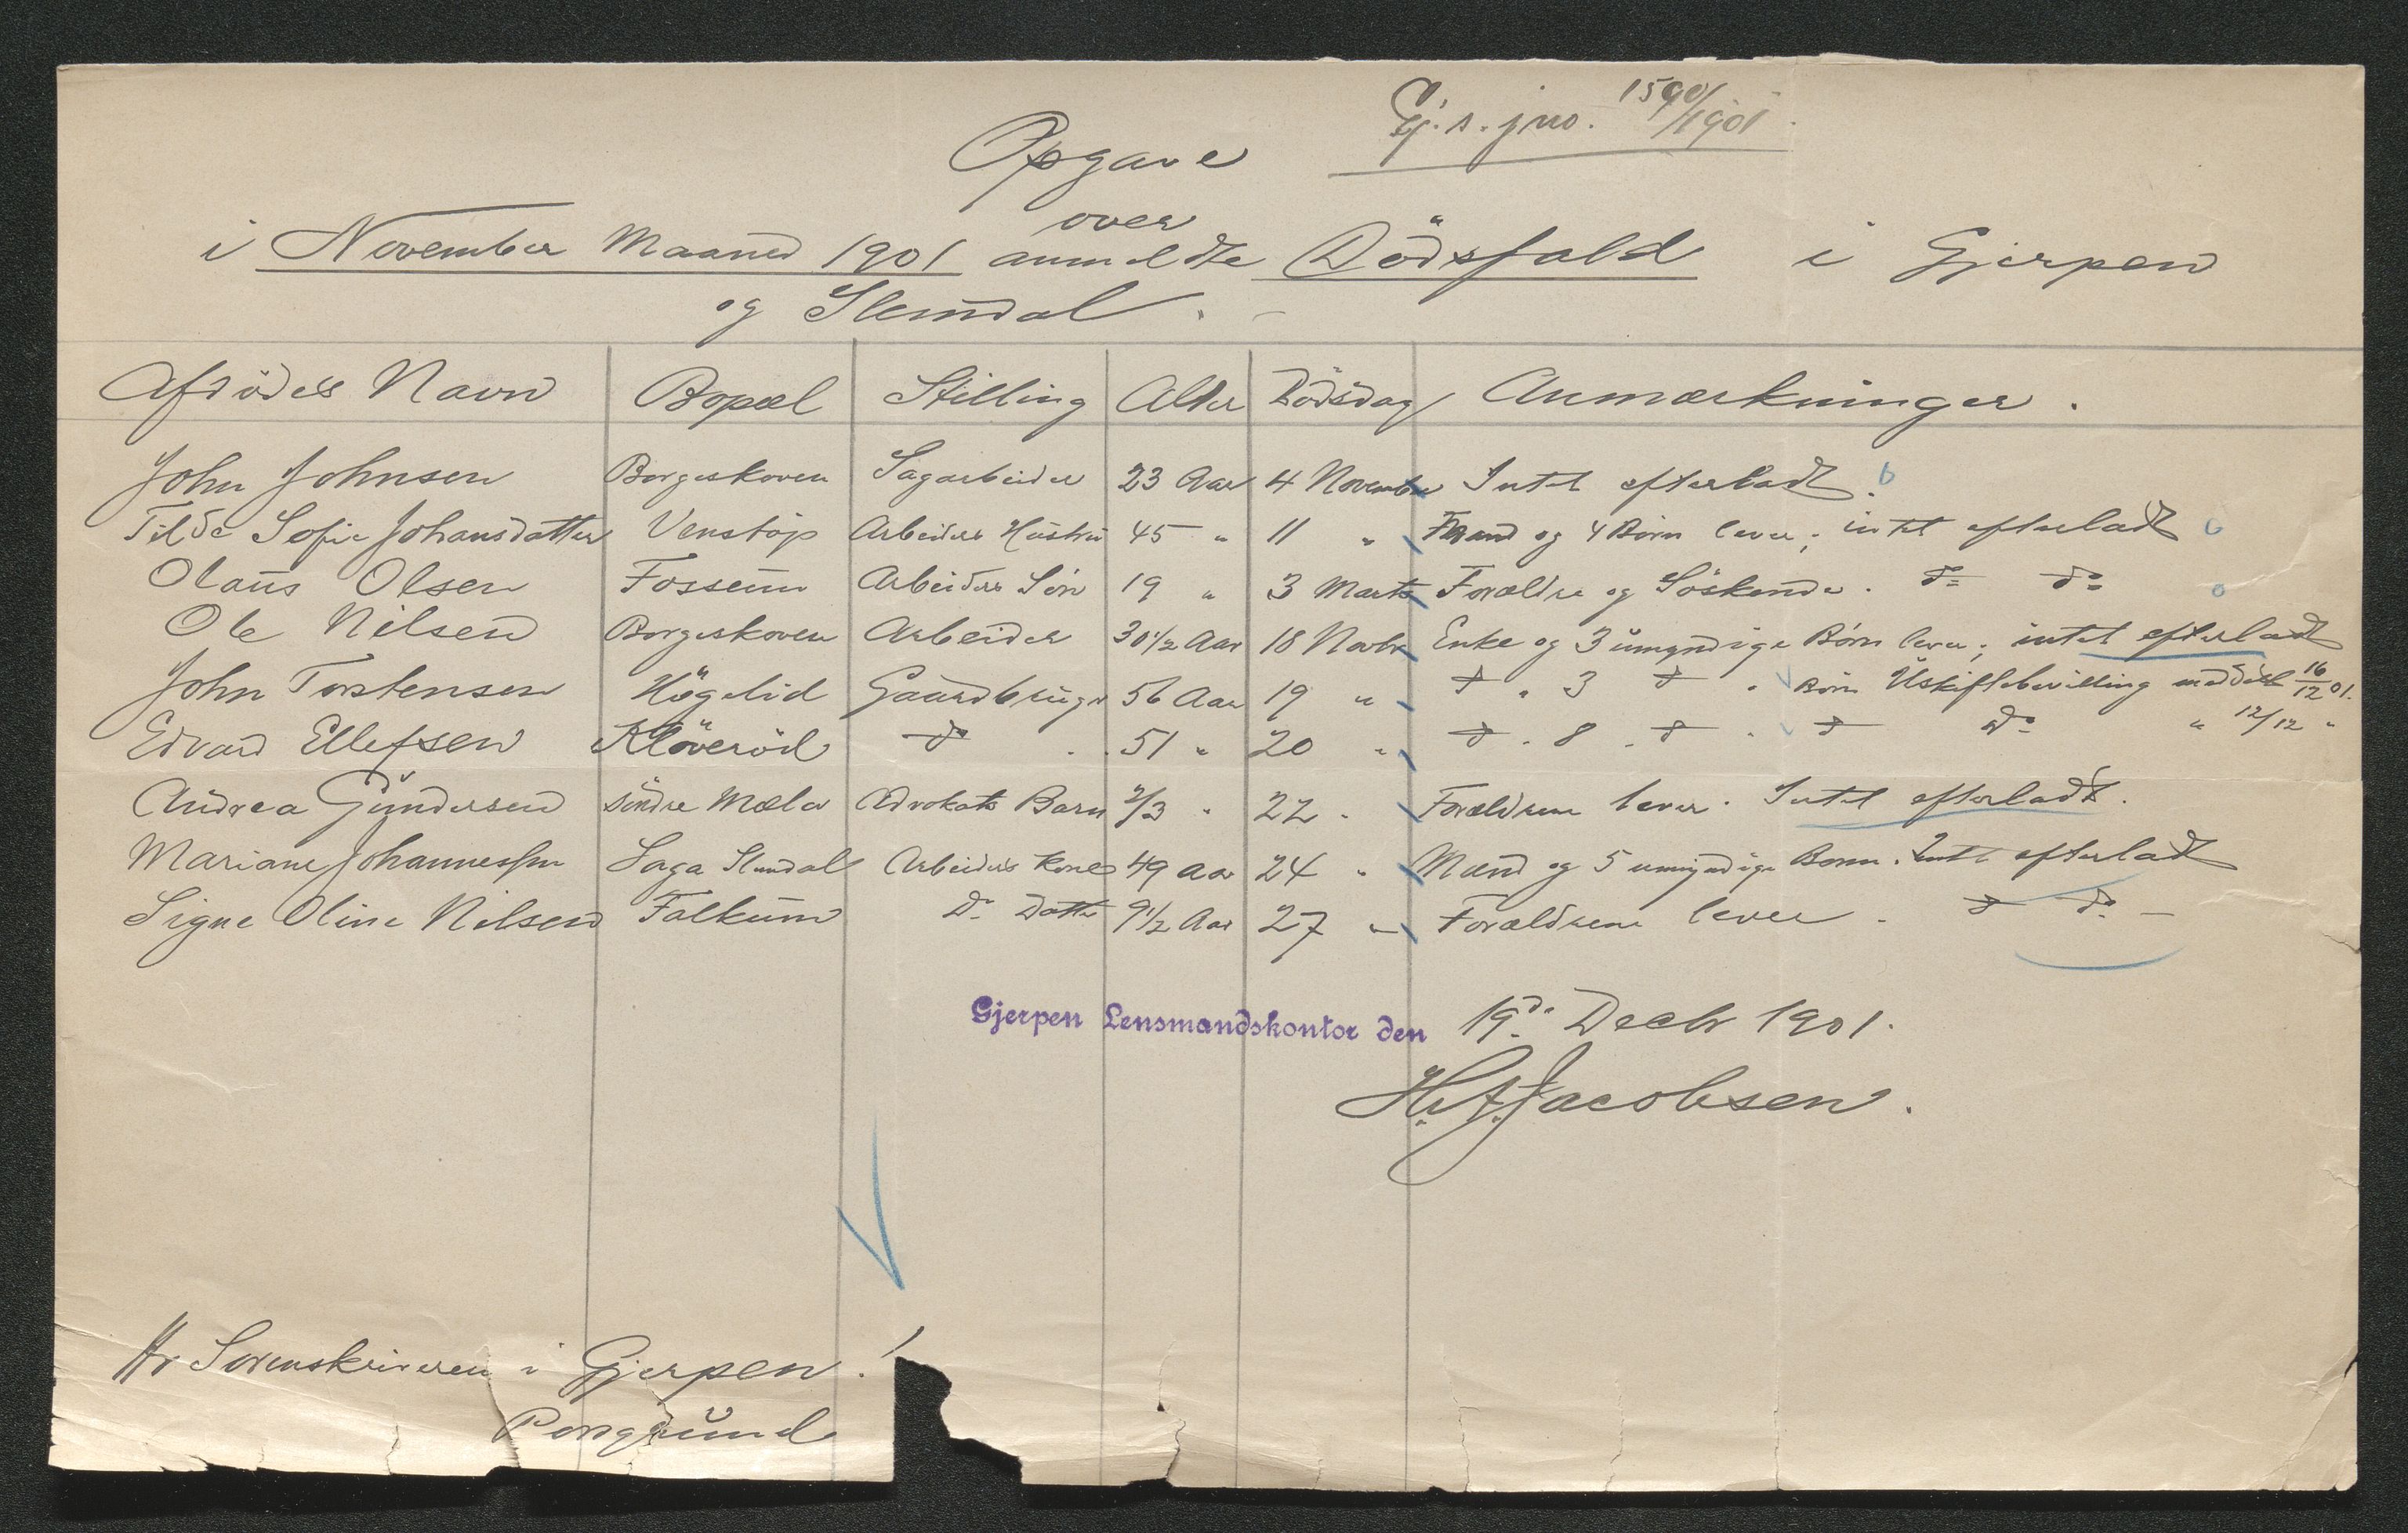 Gj. s. jno. 1590/1901.
Opgave
over
i November Maaned 1901 anmeldte Dödsfald i Gjerpen
og Slemdal.
Afdödes Navn Bopæl Stilling Alder Dödsdag Anmærkninger.
John Johnsen Borgeskoven Sagarbeider 23 Aar 4 Novembr Intet efterladt.
Tilda Sofie Johansdatter Venstöp Arbeiders Hustru 45 " 11 " Mand og 4 Börn lever; intet efterladt
Olaus Olsen Fossum Arbeiders Sön 19 " 3 Marts Forældre og Söskende. do do
Ole Nilsen Borgeskoven Arbeider 30 1/2 Aar 18 Novbr Enke og 3 umyndige Börn lever; intet efterladt
John Torstensen Högelid Gaardbruger 56 Aar 19 " do " 3 do " Börn Uskiftebevilling meddelt 16/12 01.
Edvard Ellefsen Klöveröd do 51 " 20 " do " 8 " do " do do " 12/12 "
Andrea Gundersen söndre Mæla Advokats Barn 2/3 " 22 " Forældrene lever. Intet efterladt.
Mariane Johannessen Saga Slemdal Arbeiders Kone 49 Aar 24 " Mand og 5 umyndige Börn. Intet efterladt
Signe Oline Nilsen Falkum Do Datter 9 1/2 Aar 27 " Forældrene lever. do do
Gjerpen Lensmandskontor den 19de Decbr 1901.
H. A. Jacobsen.
Hr Sorenskriveren i Gjerpen!
Porsgrund